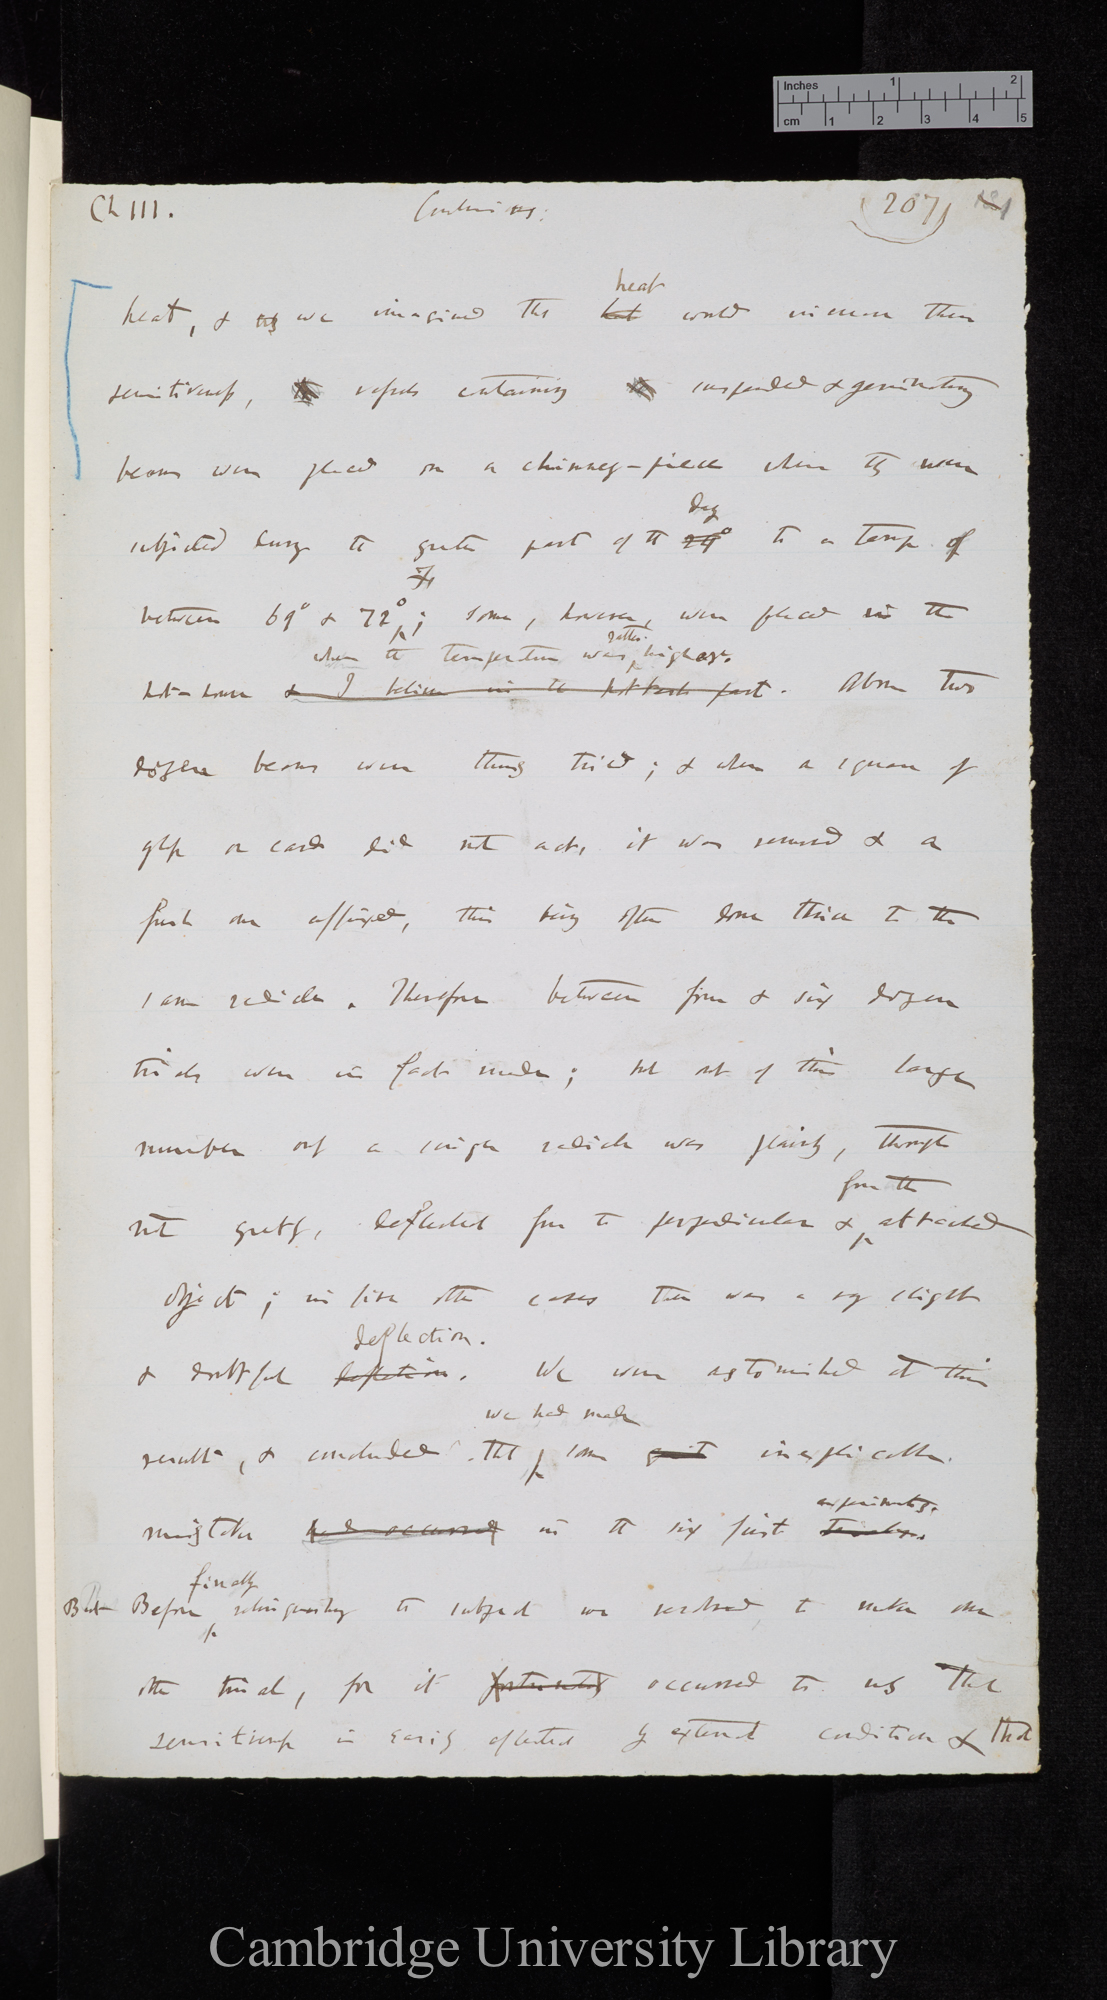 Inches 1 2
cm 1 2 3 4 5
Ch III. (207)
heat
heat, & as we imagined this heat would increase their
sensitiveness, vessels containing suspended & germinating
beans were placed on a chimney-piece where they were
day
subjected during the greater part of the 24° to a temp. of
between 69° & 72° F; some, however, were placed in the
when the temperature was rather higher.
hot-house & I believe in the hottest part. Above two
dozen beans were thus tried; & when a square of
glass or card did not act, it was removed & a
fresh one affixed, this being often done thrice to the
same radicle. Therefore between five & six dozen
trials were in fact made; but out of this large
number only a single radicle was plainly, though
from the
not greatly, deflected from the perpendicular & attached
object; in five other cases there was a very slight
deflection.
& doubtful deflection. We were astonished at this
we had made
result, & concluded that some great inexplicable
mistake had occurred in the six first
experiments.
finally
But Before relinquishing the subject we resolved to make one
other trial, for it fortunately occurred to us that
sensitiveness is easily affected by external conditions & that
Cambridge University Library